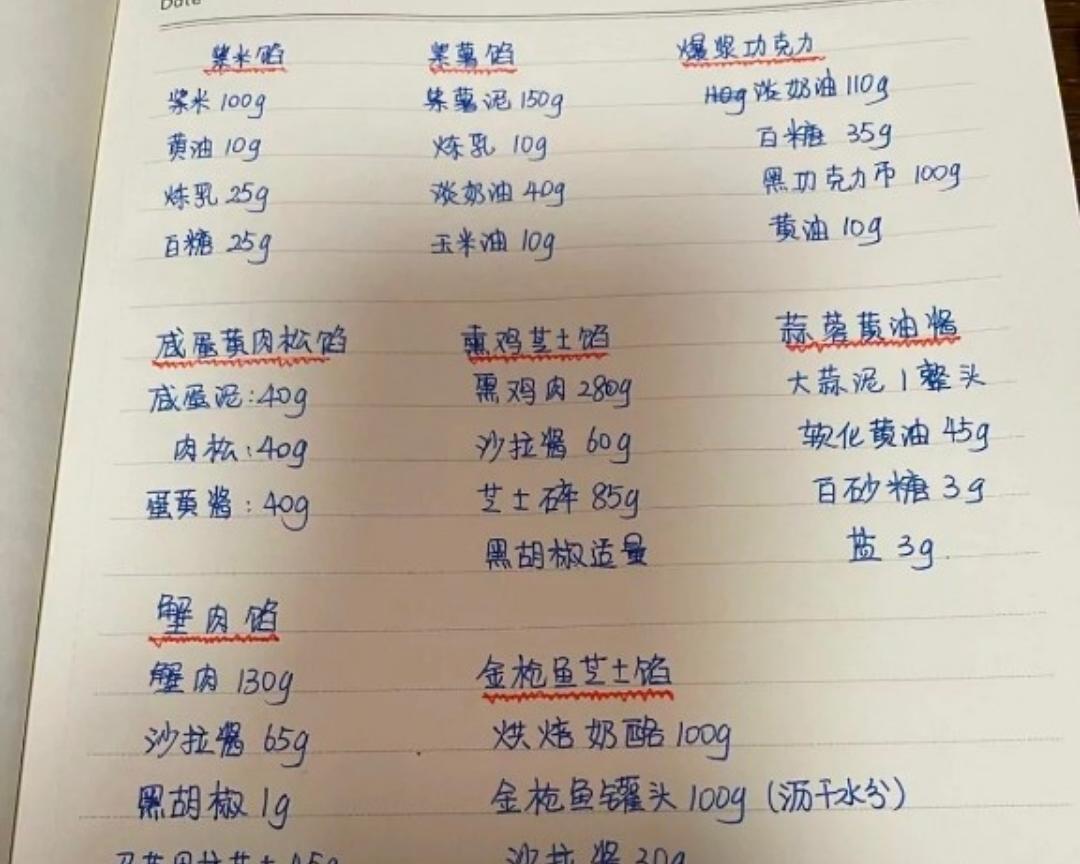 Date
紫米馅
紫米 100g
黄油 10g
炼乳 25g
白糖 25g
紫薯馅
紫薯泥 150g
炼乳 10g
淡奶油 40g
玉米油 10g
爆浆功克力
110g 淡奶油 110g
白糖 35g
黑功克力币 100g
黄油 10g
咸蛋黄肉松馅
咸蛋泥:40g
肉松:40g
蛋黄酱:40g
熏鸡芝士馅
熏鸡肉 280g
沙拉酱 60g
芝士碎 85g
黑胡椒适量
蒜蓉黄油酱
大蒜泥 1 整头
软化黄油 45g
白砂糖 3g
盐 3g
蟹肉馅
蟹肉 130g
沙拉酱 65g
黑胡椒 1g
金枪鱼芝士馅
烘焙奶酪 100g
金枪鱼罐头 100g (沥干水分)
沙拉酱 30g